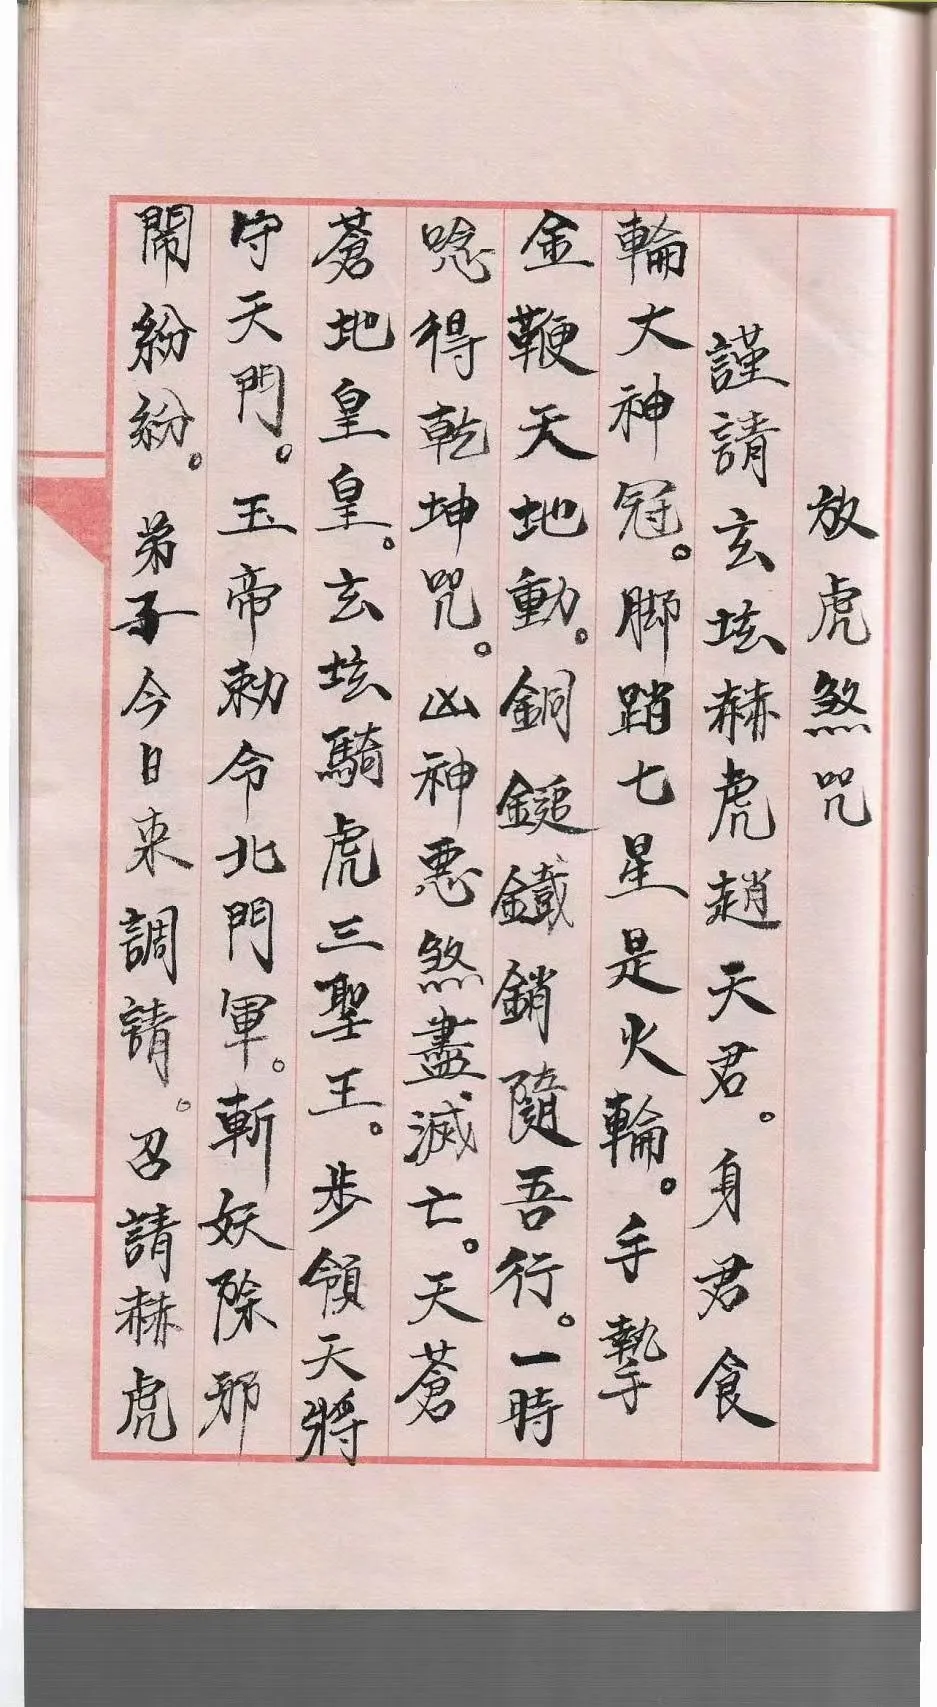 放虎煞咒
謹請玄坛赫虎趙天君。身君食
輪大神冠。脚踏七星是火輪。手擎
金鞭天地動。銅鎚鐵銷隨吾行。一時
唸得乾坤咒。凶神惡煞盡滅亡。天蒼
蒼地皇皇。玄坛騎虎三聖王。步領天將
守天門。玉帝勅令北門軍。斬妖除邪
鬧紛紛。弟子今日来調請。召請赫虎